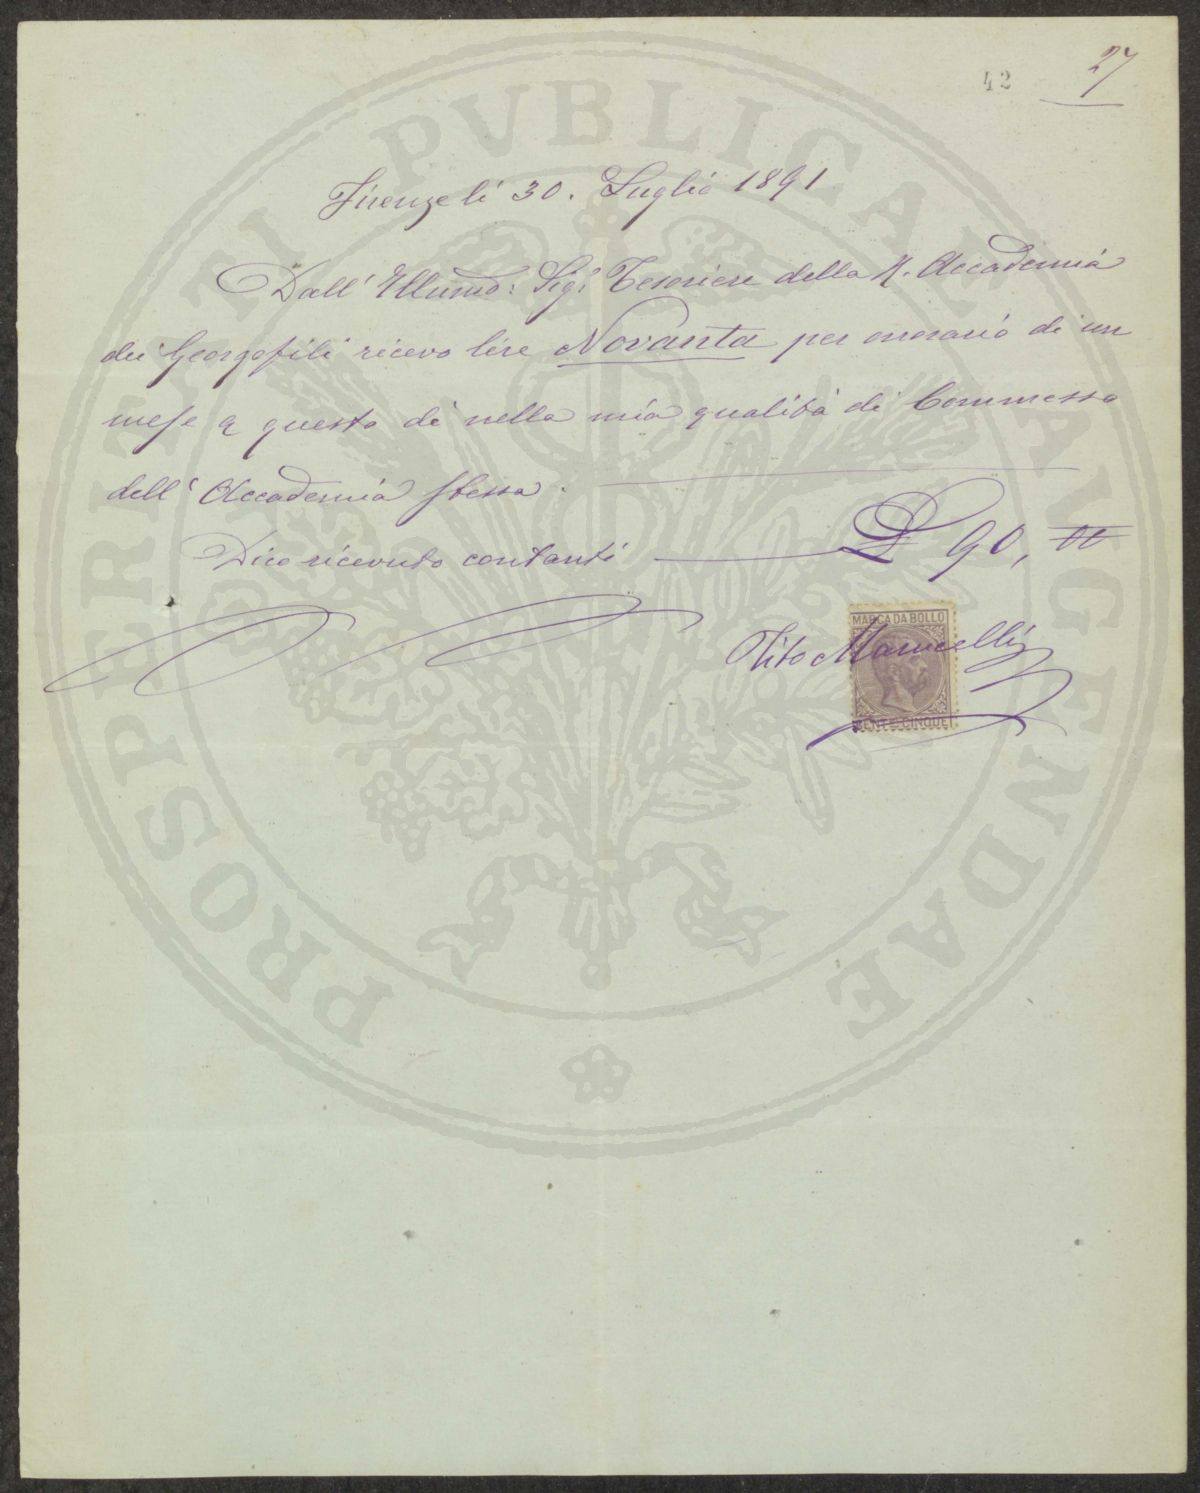 42
27
Firenze lì 30. Luglio 1891
Dall' Illumo: Sigr Tesoriere della R. Accademia
dei Georgofili ricevo lire Novanta per onorario di un
mese a questo dì nella mia qualità di Commesso
dell' Accademia stessa.
Dico ricevuto contanti L 90, 00
MARCA DA BOLLO
Tito Marucelli
CENT. CINQUE
PROSPERITATI PVBLICAE AVGENDAE